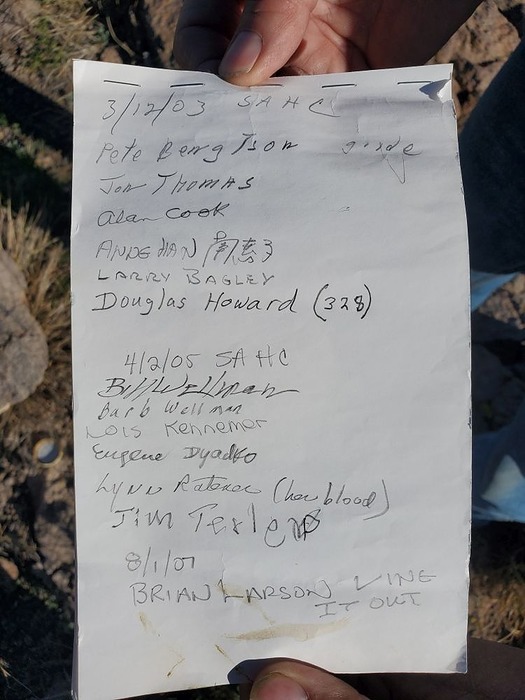 3/12/03 SAHC
Pete Bengtson guide
Jon Thomas
Alan Cook
ANDE HAN
LARRY BAGLEY
Douglas Howard (328)
4/2/05 SAHC
Bill Wellman
Barb Wellman
Lois Kennemer
Eugene Dyadko
Lynn (her blood)
Jim
8/1/07
BRIAN LARSON VINE
IT OUT